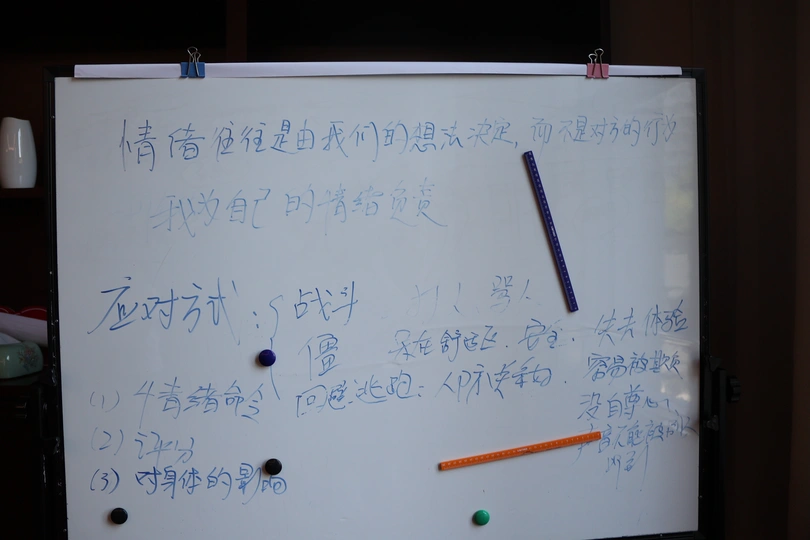 情绪往往是由我们的想法决定,而不是对方的行为
我为自己的情绪负责
应对方式: 战斗 打人 骂人
僵 呆在舒适区、安全、失去体验
回避逃跑: 容易被欺
(1) 情绪命令
没自尊心、
(2) 评分
(3) 对身体的影响